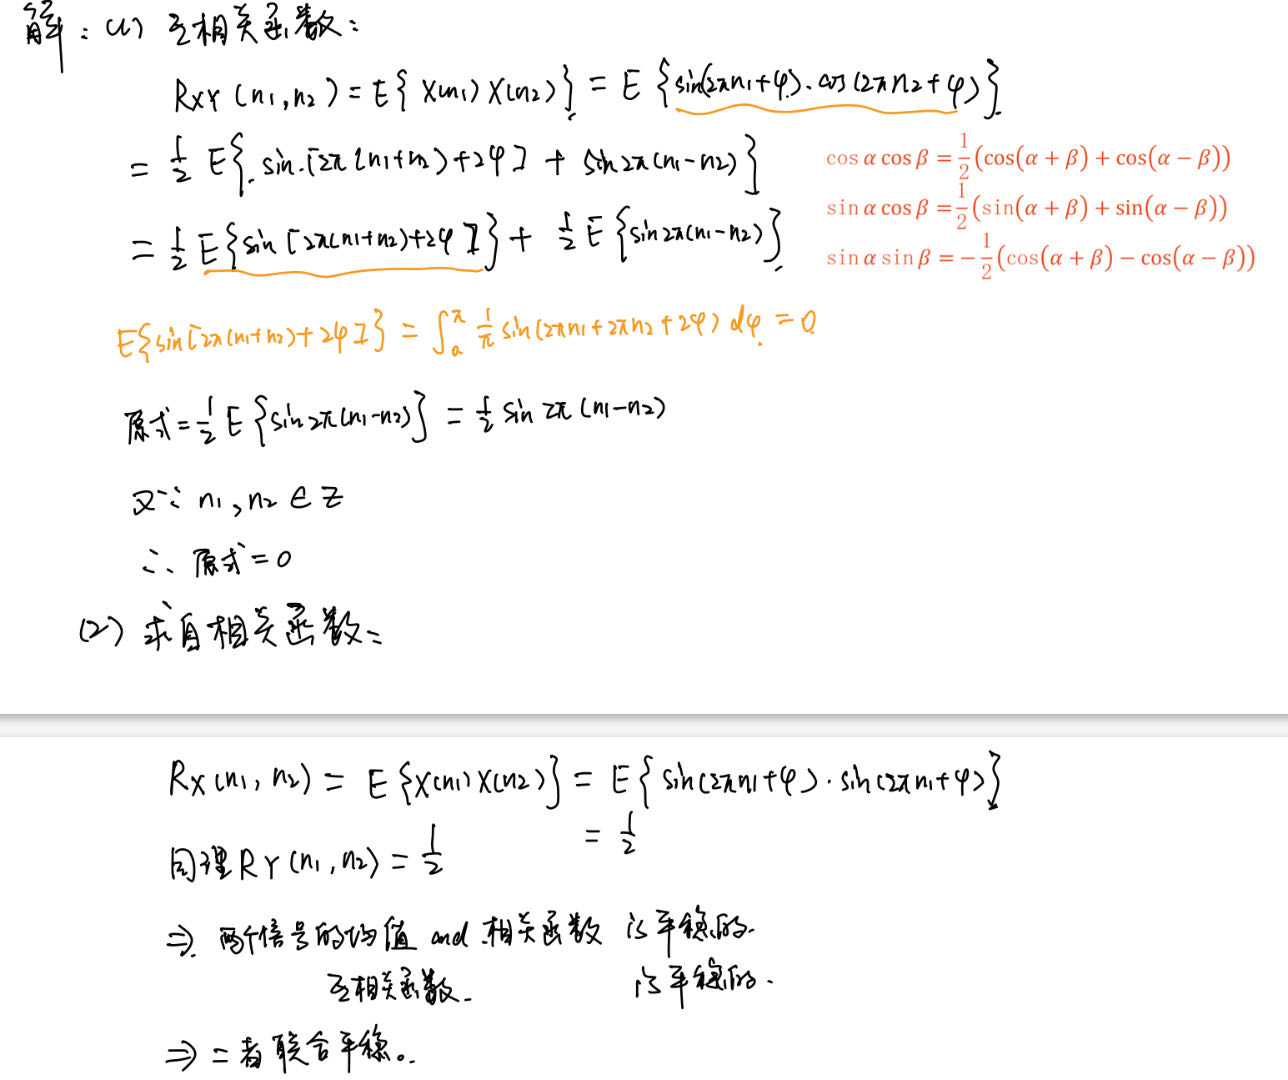 解：(1) 互相关函数：
RXY (n1,n2) = E{ X(n1) X(n2)} = E {sin(2πn1+φ)·cos(2πn2+φ)}
= 1/2 E{ sin·[2π(n1+n2)+2φ] + sin2π(n1-n2)}
= 1/2 E{sin[2π(n1+n2)+2φ]} + 1/2 E{sin2π(n1-n2)}
cos α cos β = 1/2 (cos(α + β) + cos(α − β))
sin α cos β = 1/2 (sin(α + β) + sin(α − β))
sin α sin β = − 1/2 (cos(α + β) − cos(α − β))
E{sin[2π(n1+n2)+2φ]} = ∫₀^π 1/π sin(2πn1+2πn2+2φ) dφ = 0
原式 = 1/2 E{sin2π(n1-n2)} = 1/2 sin 2π(n1-n2)
又∵ n1,n2 ∈ Z
∴ 原式 = 0
(2) 求自相关函数：
RX(n1,n2) = E{X(n1)X(n2)} = E{sin(2πn1+φ)·sin(2πn1+φ)}
= 1/2
同理 RY(n1,n2) = 1/2
⇒ 两个信号的均值 and 相关函数 is 平稳的.
互相关函数. is 平稳的.
⇒ 二者联合平稳。